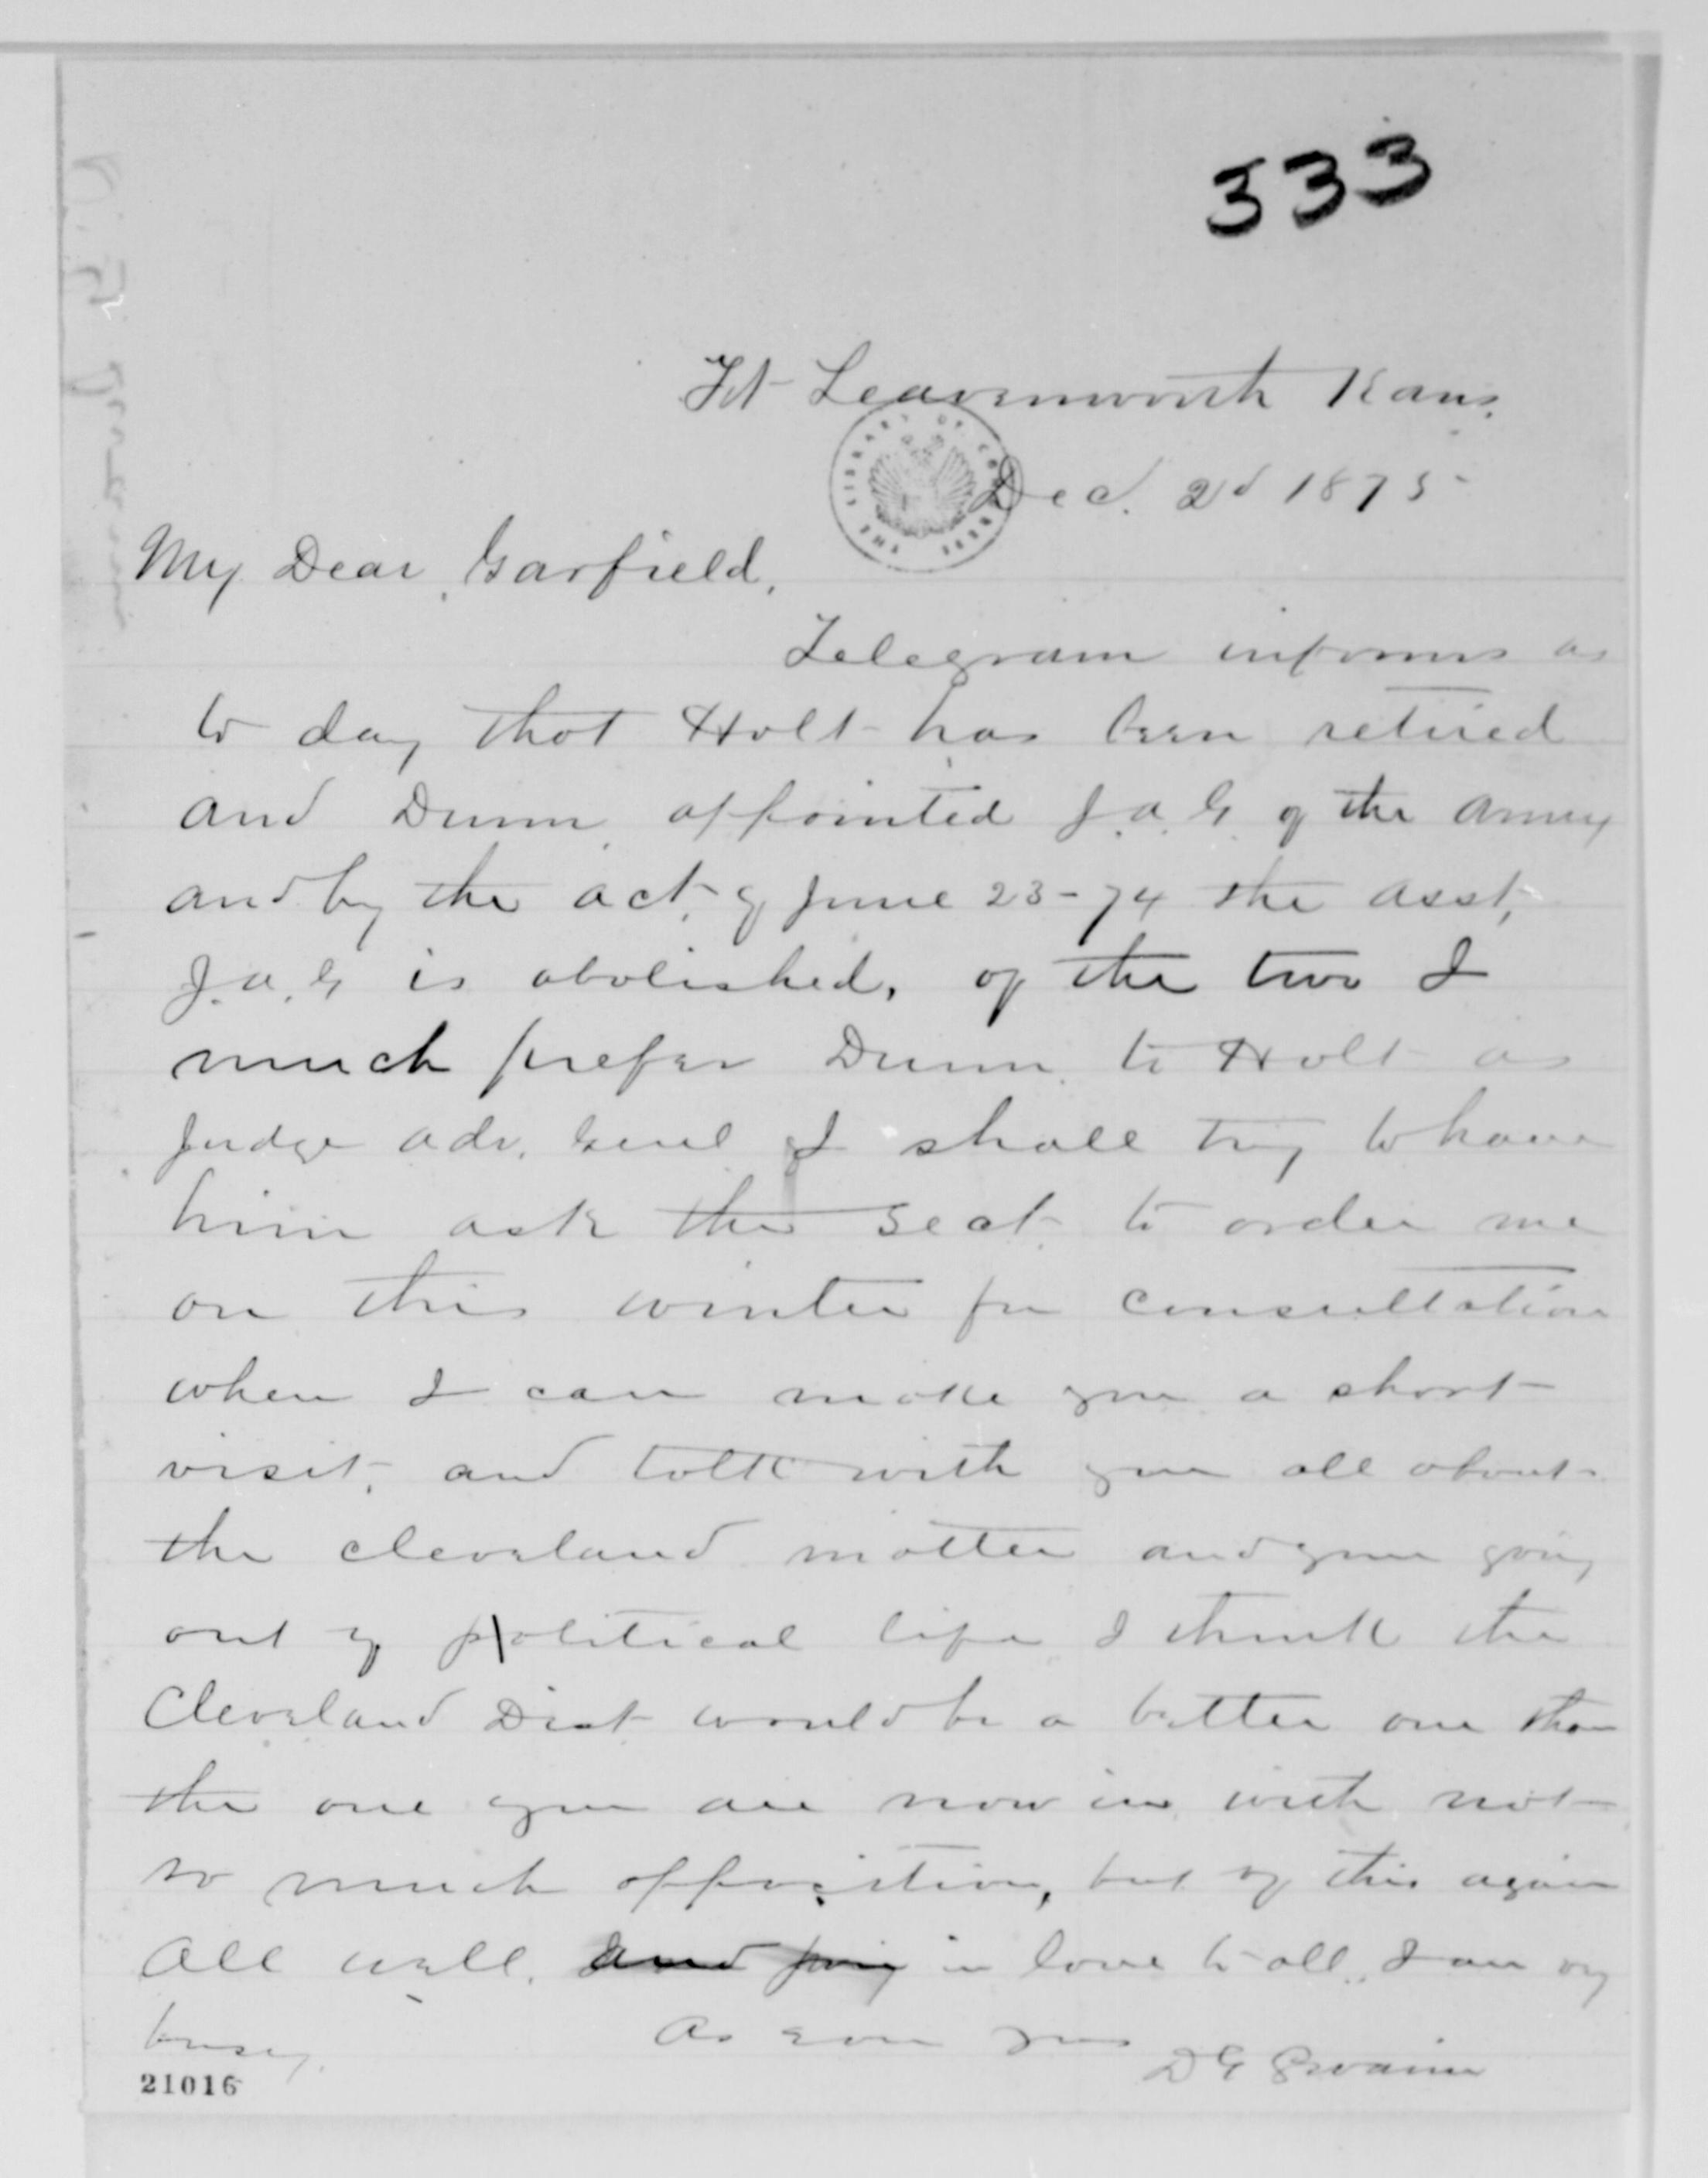 333
Ft Leavenworth Kans.
THE LIBRARY OF CONGRESS
Dec. 2d 1875
My Dear Garfield,
Telegram informs us
to day that Holt has been retired
and Dunn appointed J.A.G. of the army
and by the act of June 23-74 the asst,
J.A.G is abolished, of the two I
much prefer Dunn to Holt as
Judge Adv. Genl I shall try to have
him ask the Sect to order me
on this winter for consultation
when I can make you a short
visit, and talk with you all about
the Cleveland matter and your going
out of political life I think the
Cleveland Dist would be a better one than
the one you are now in with not
so much opposition, but of this again
All well. and join in love to all. I am very
busy.
As ever yours
D G Swaim
21016